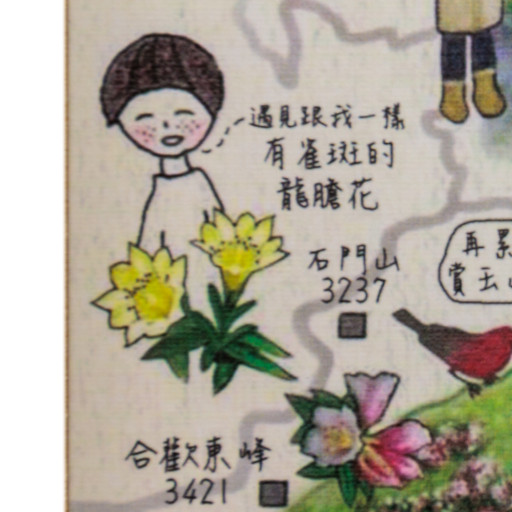 遇見跟我一樣
有雀斑的
龍膽花
石門山
3237
再累
賞玉山
合歡東峰
3421